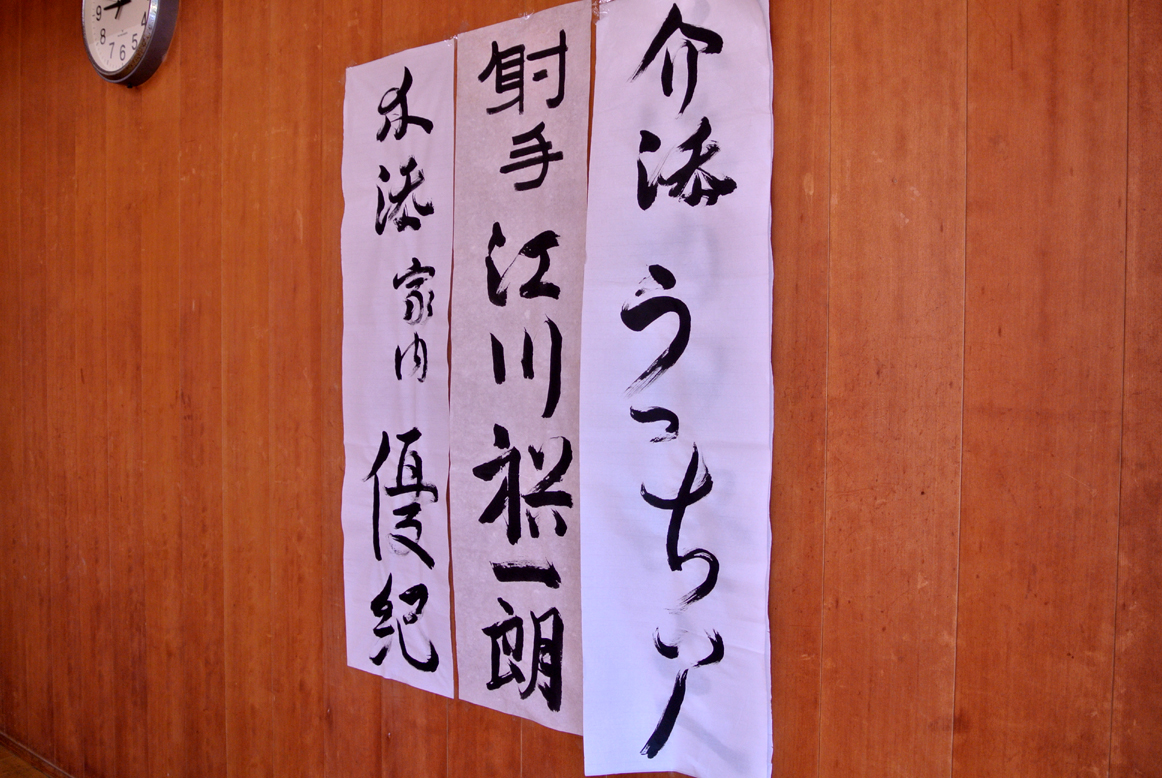 介添 うっちぃー
射手 江川裕一朗
添 家内 優紀
9 8 7 6 5 4